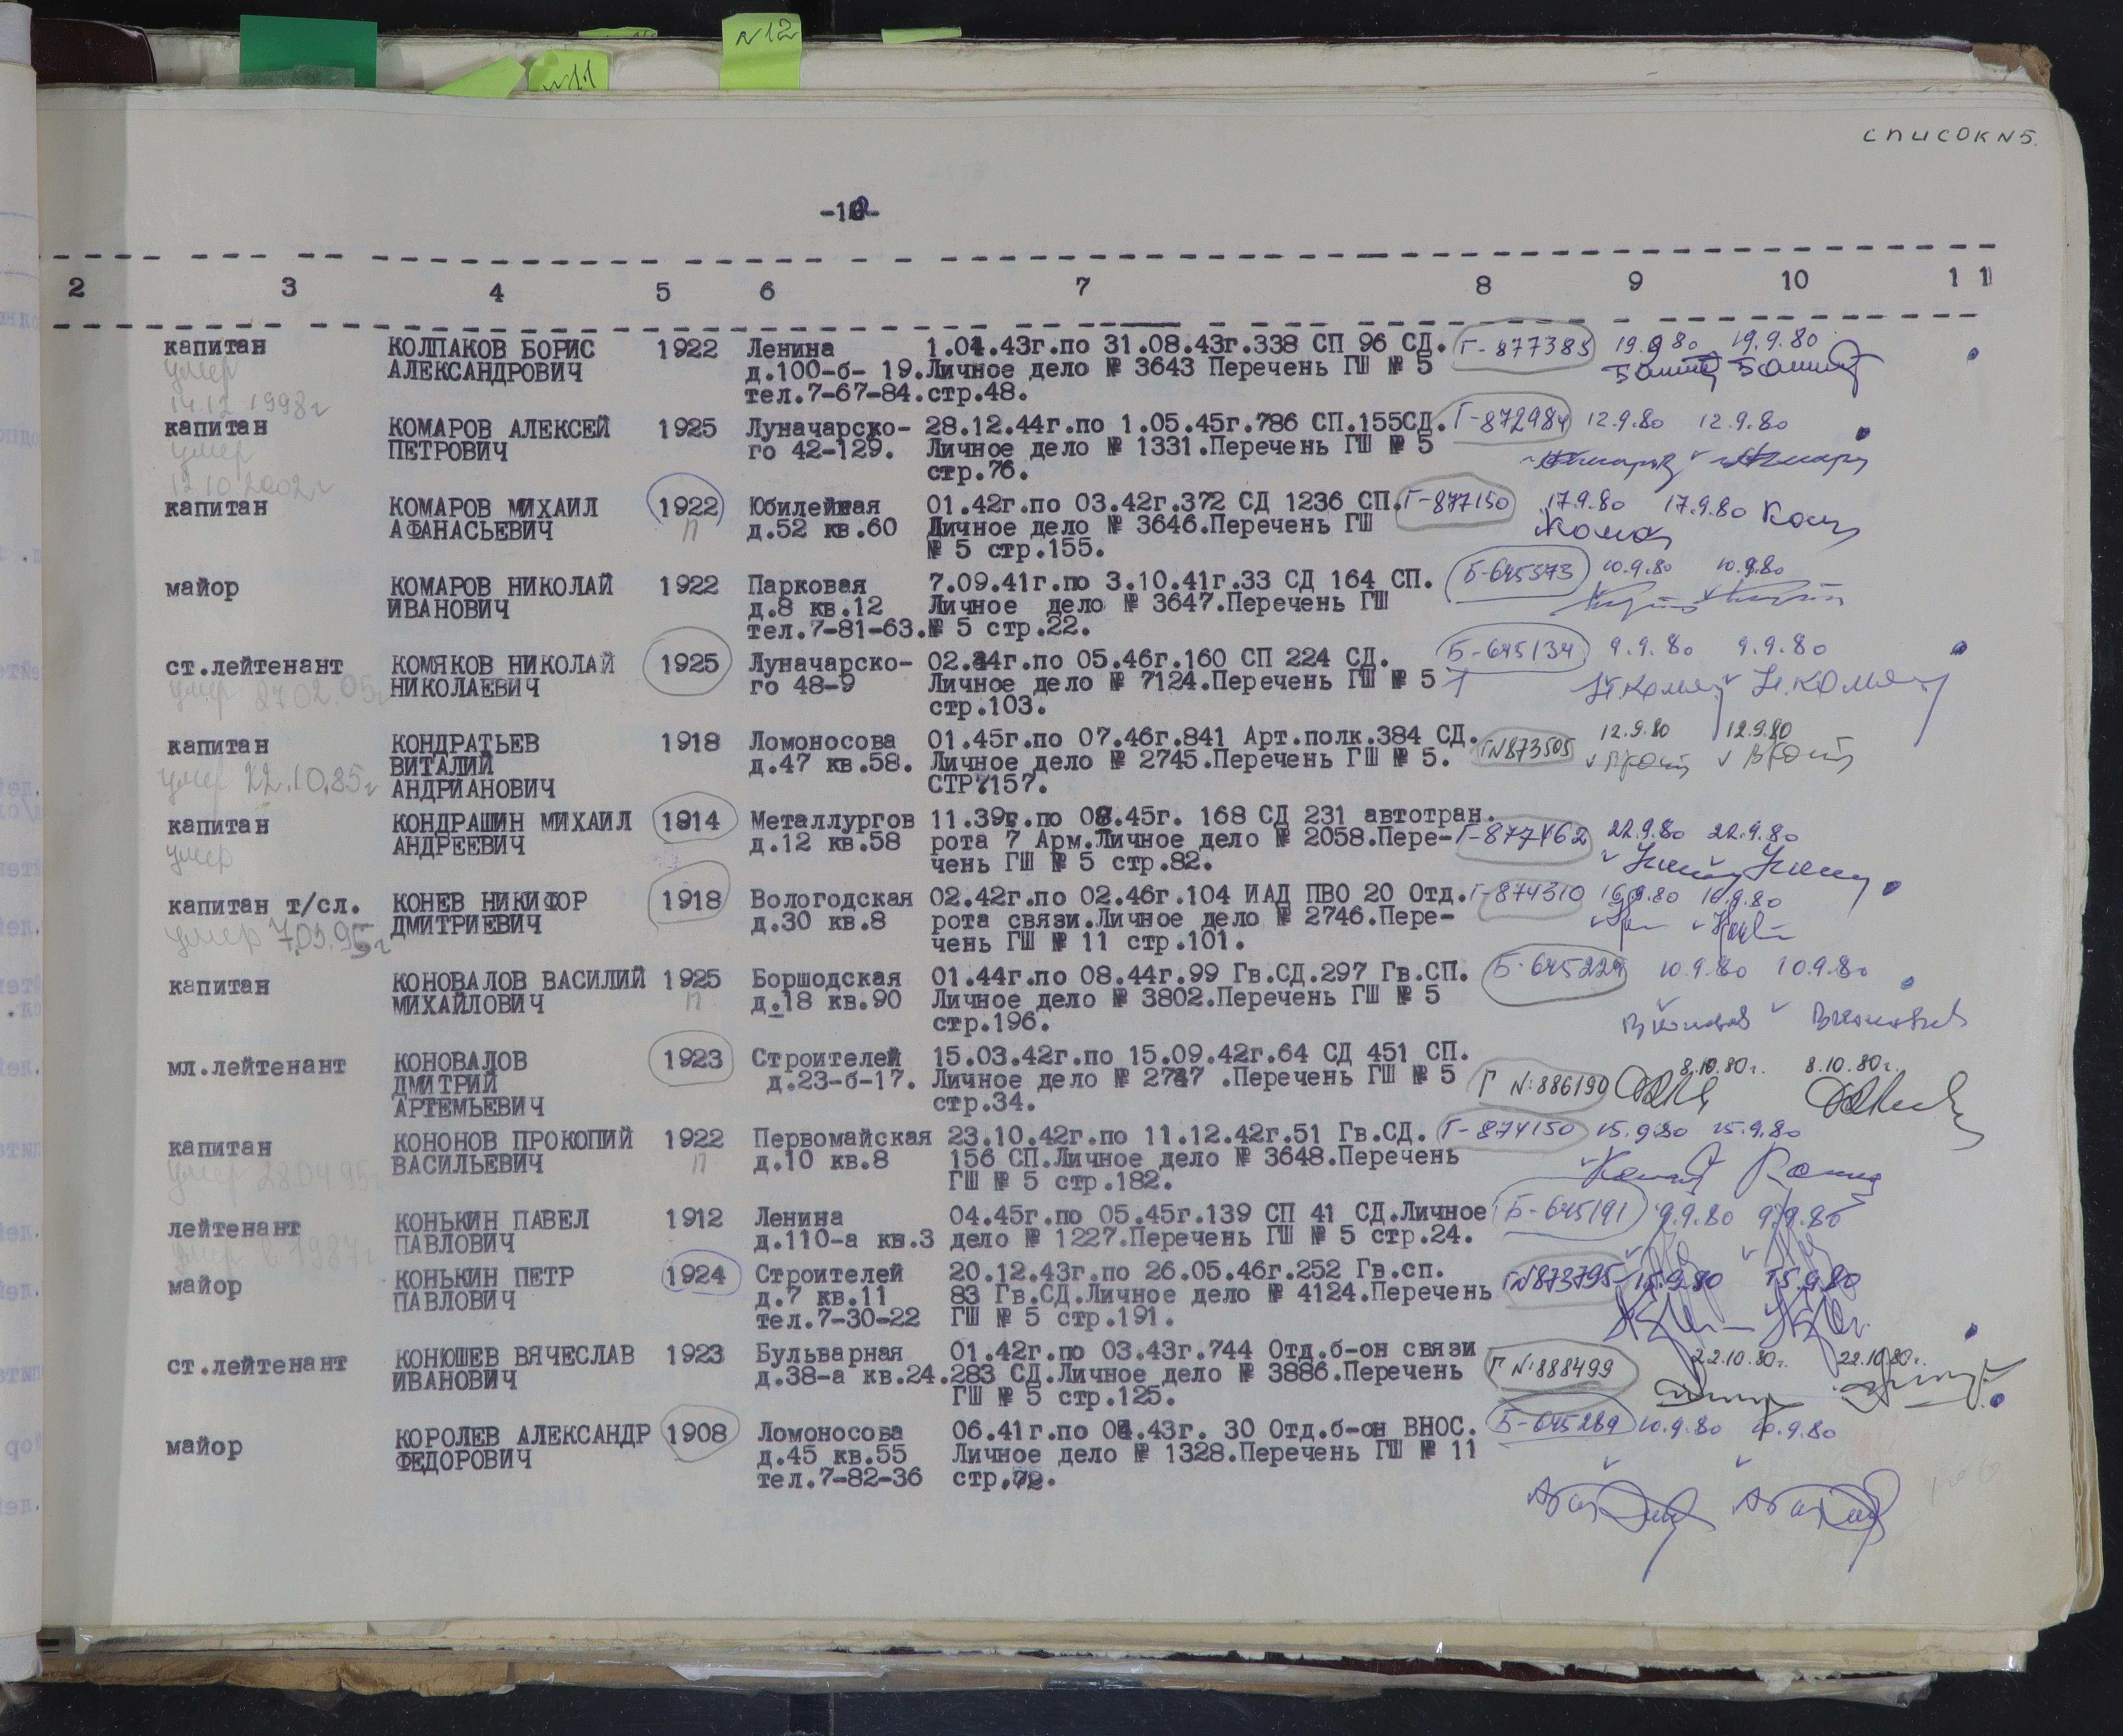 N12
N11
СПИСОК N5.
2 3 4 5 6 7 8 9 10 11
капитан КОЛПАКОВ БОРИС 1922 Ленина 1.04.43г.по 31.08.43г.338 СП 96 СД. Г-877385 19.9.80 19.9.80
умер АЛЕКСАНДРОВИЧ д.100-б- 19.Личное дело № 3643 Перечень ГШ № 5
14.12 1998г тел.7-67-84.стр.48.
капитан КОМАРОВ АЛЕКСЕЙ 1925 Луначарско- 28.12.44г.по 1.05.45г.786 СП.155СД. Г-872984 12.9.80 12.9.80
умер ПЕТРОВИЧ го 42-129. Личное дело № 1331.Перечень ГШ № 5
12.10.2002г стр.76.
капитан КОМАРОВ МИХАИЛ 1922 Юбилейная 01.42г.по 03.42г.372 СД 1236 СП. Г-877150 17.9.80 17.9.80
АФАНАСЬЕВИЧ П д.52 кв.60 Личное дело № 3646.Перечень ГШ
№ 5 стр.155.
майор КОМАРОВ НИКОЛАЙ 1922 Парковая 7.09.41г.по 3.10.41г.33 СД 164 СП. Б-645573 10.9.80 10.9.80
ИВАНОВИЧ д.8 кв.12 Личное дело № 3647.Перечень ГШ
тел.7-81-63.№ 5 стр.22.
ст.лейтенант КОМЯКОВ НИКОЛАЙ 1925 Луначарско- 02.44г.по 05.46г.160 СП 224 СД. Б-645134 9.9.80 9.9.80
умер 27.02.05г НИКОЛАЕВИЧ го 48-9 Личное дело № 7124.Перечень ГШ № 5
стр.103.
капитан КОНДРАТЬЕВ 1918 Ломоносова 01.45г.по 07.46г.841 Арт.полк.384 СД. ГN873505 12.9.80 12.9.80
умер 22.10.85г ВИТАЛИЙ д.47 кв.58. Личное дело № 2745.Перечень ГШ № 5.
АНДРИАНОВИЧ СТР.157.
капитан КОНДРАШИН МИХАИЛ 1914 Металлургов 11.39г.по 08.45г. 168 СД 231 автотран. Г-877462 22.9.80 22.9.80
умер АНДРЕЕВИЧ д.12 кв.58 рота 7 Арм.Личное дело № 2058.Пере-
чень ГШ № 5 стр.82.
капитан т/сл. КОНЕВ НИКИФОР 1918 Вологодская 02.42г.по 02.46г.104 ИАД ПВО 20 Отд. Г-874310 16.9.80 16.9.80
умер 7.03.95г ДМИТРИЕВИЧ д.30 кв.8 рота связи.Личное дело № 2746.Пере-
чень ГШ № 11 стр.101.
капитан КОНОВАЛОВ ВАСИЛИЙ 1925 Боршодская 01.44г.по 08.44г.99 Гв.СД.297 Гв.СП. Б-645229 10.9.80 10.9.80
МИХАЙЛОВИЧ П д.18 кв.90 Личное дело № 3802.Перечень ГШ № 5
стр.196.
мл.лейтенант КОНОВАЛОВ 1923 Строителей 15.03.42г.по 15.09.42г.64 СД 451 СП. Г N:886190 8.10.80г. 8.10.80г.
ДМИТРИЙ д.23-б-17. Личное дело № 2747 .Перечень ГШ № 5
АРТЕМЬЕВИЧ стр.34.
капитан КОНОНОВ ПРОКОПИЙ 1922 Первомайская 23.10.42г.по 11.12.42г.51 Гв.СД. Г-874150 15.9.80 15.9.80
умер 28.04.95г ВАСИЛЬЕВИЧ П д.10 кв.8 156 СП.Личное дело № 3648.Перечень
ГШ № 5 стр.182.
лейтенант КОНЬКИН ПАВЕЛ 1912 Ленина 04.45г.по 05.45г.139 СП 41 СД.Личное Б-645191 9.9.80 9.9.80
умер в 1987г ПАВЛОВИЧ д.110-а кв.3 дело № 1227.Перечень ГШ № 5 стр.24.
майор КОНЬКИН ПЕТР 1924 Строителей 20.12.43г.по 26.05.46г.252 Гв.сп. ГN873795 15.9.80 15.9.80
ПАВЛОВИЧ д.7 кв.11 83 Гв.СД.Личное дело № 4124.Перечень
тел.7-30-22 ГШ № 5 стр.191.
ст.лейтенант КОНЮШЕВ ВЯЧЕСЛАВ 1923 Бульварная 01.42г.по 03.43г.744 Отд.б-он связи Г N:888499 22.10.80г. 22.10.80г.
ИВАНОВИЧ д.38-а кв.24.283 СД.Личное дело № 3886.Перечень
ГШ № 5 стр.125.
майор КОРОЛЕВ АЛЕКСАНДР 1908 Ломоносова 06.41г.по 04.43г. 30 Отд.б-он ВНОС. Б-645289 10.9.80 10.9.80
ФЕДОРОВИЧ д.45 кв.55 Личное дело № 1328.Перечень ГШ № 11
тел.7-82-36 стр.72.